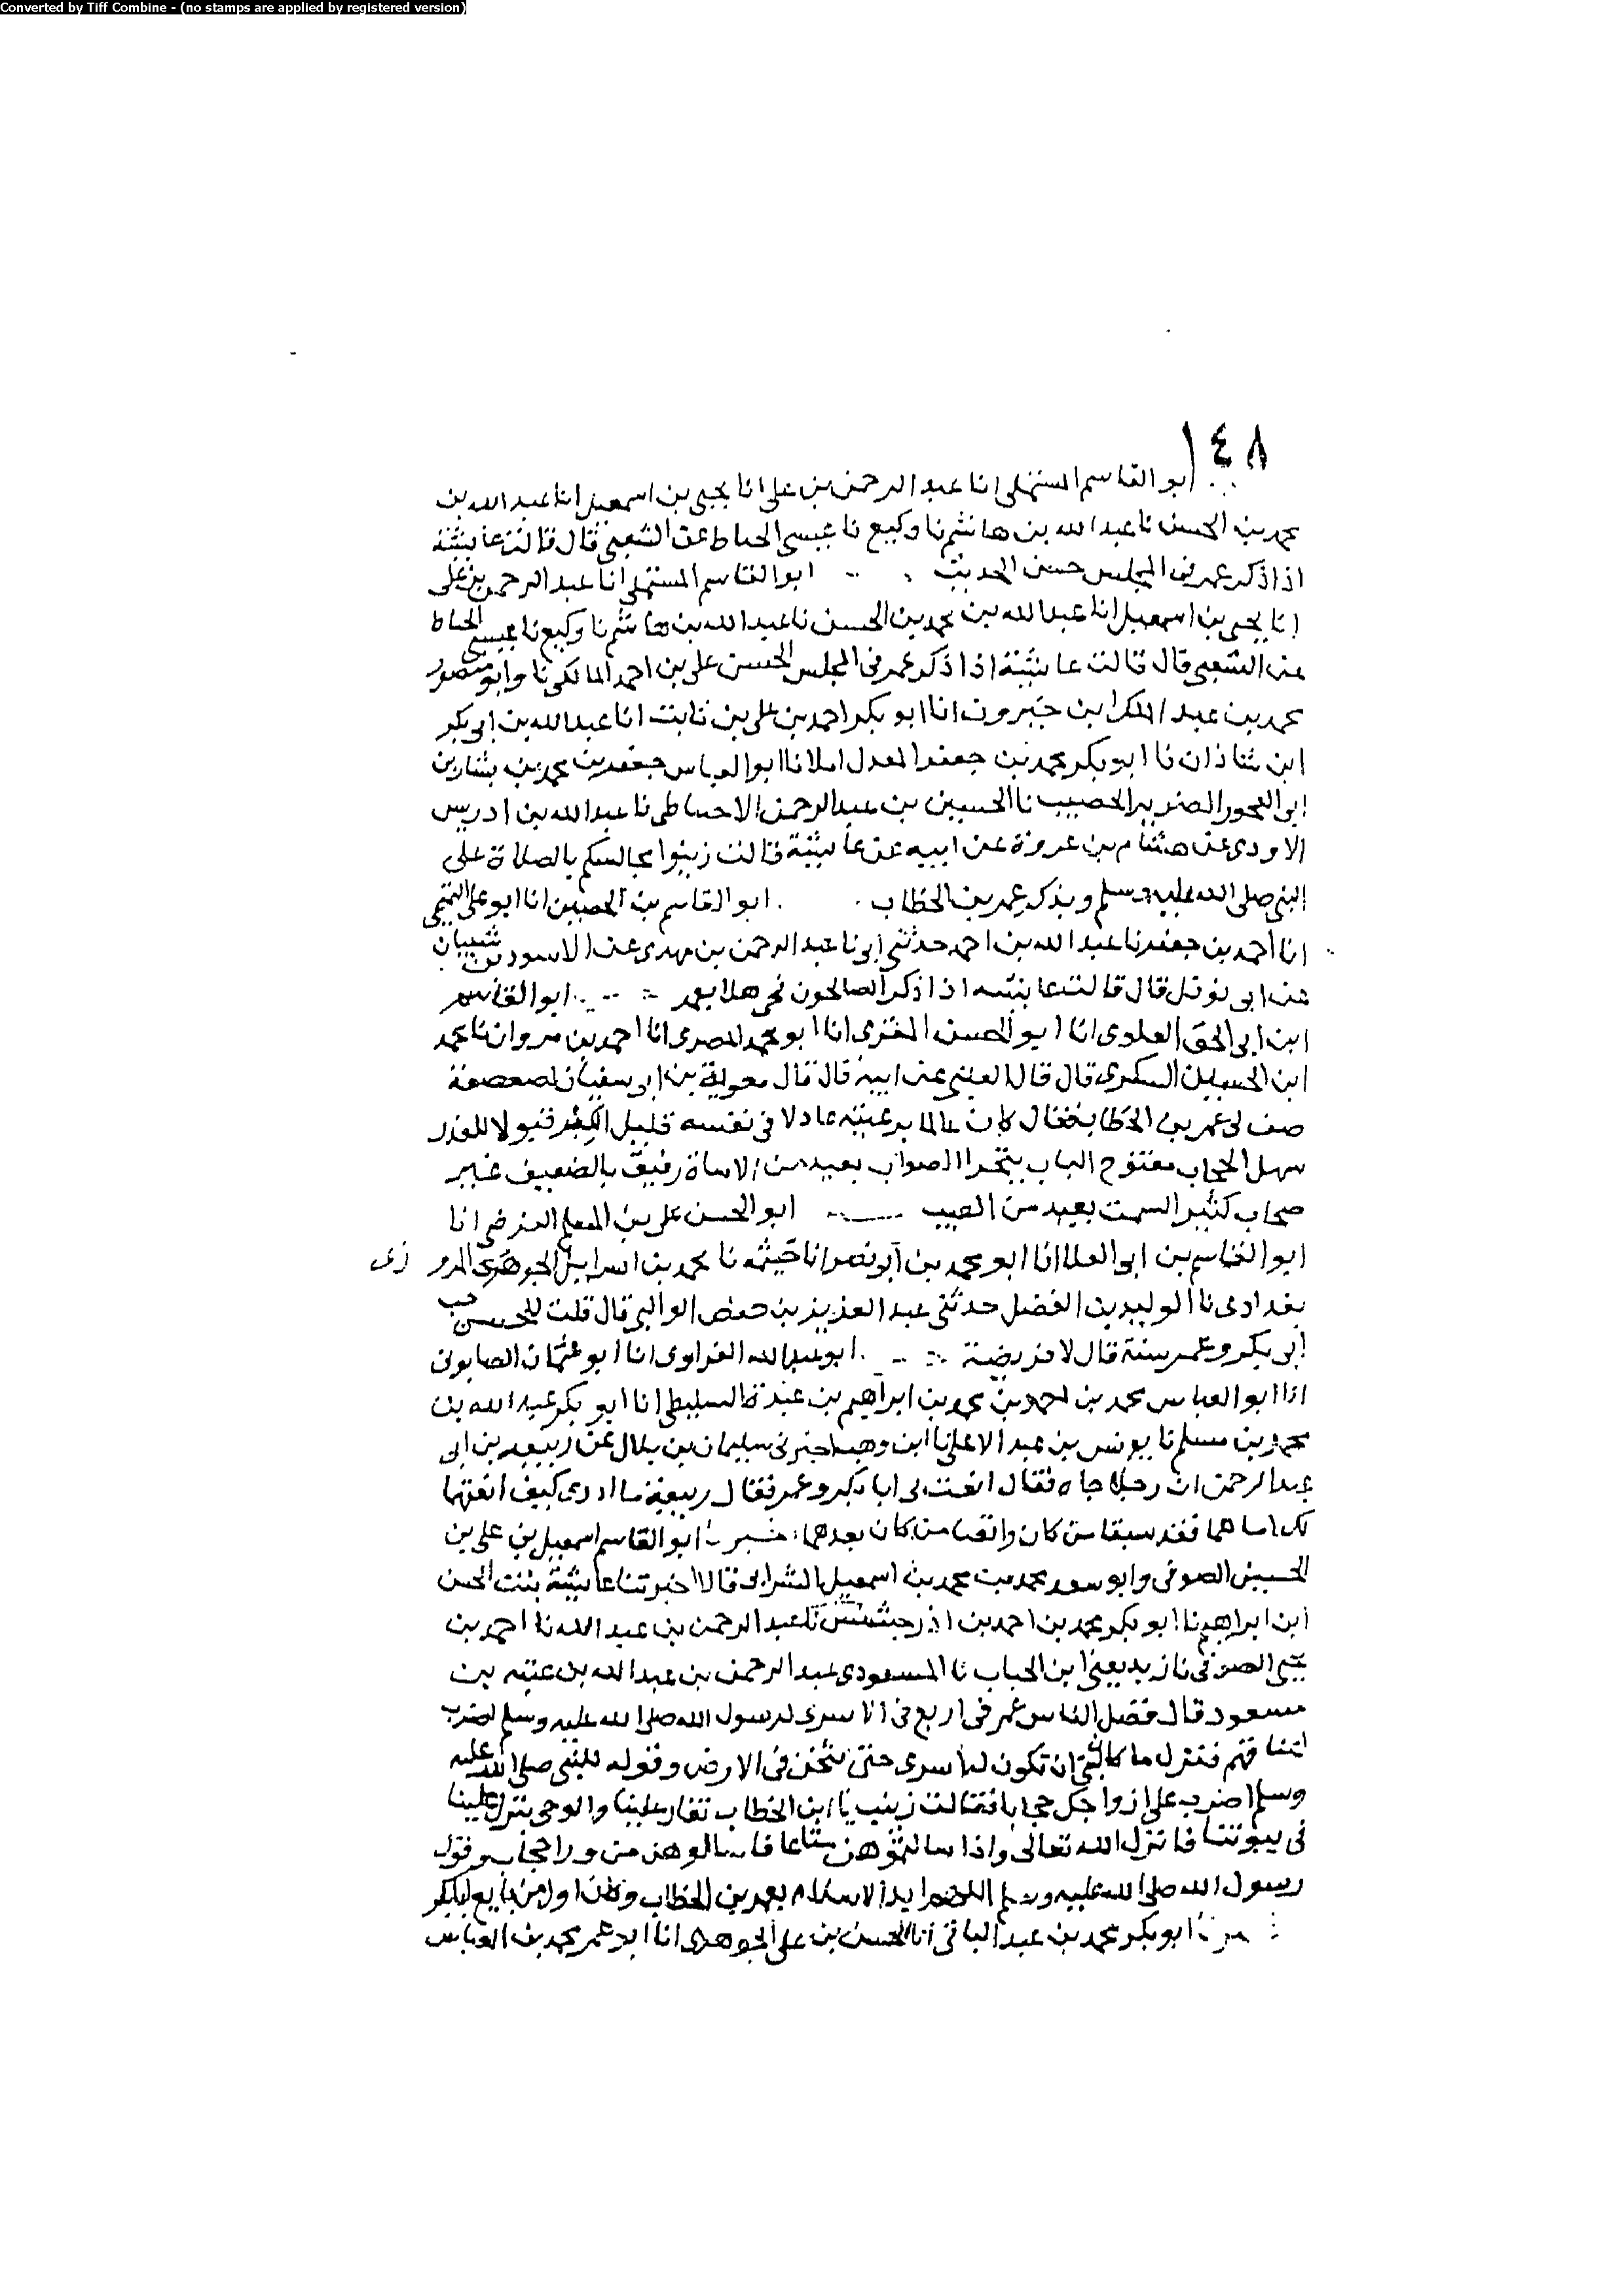 Converted by Tiff Combine - (no stamps are applied by registered version)
١٤٨
ابو القاسم المستملى انا عبد الرحمن بن على انا يحيى بن اسمعيل انا عبد الله بن
محمد بن الحسن نا عبد الله بن هاشم نا وكيع نا عيسى الحناط عن الشعبى قال قالت عايشة
اذا ذكر عمر فى المجلس حسن الحديث ابو القاسم المستملى انا عبد الرحمن بن على
انا يحيى بن اسمعيل انا عبد الله بن محمد بن الحسن نا عبد الله بن هاشم نا وكيع نا عيسى الحناط
عن الشعبى قال قالت عايشة اذا ذكر عمر فى المجلس الحسن على بن احمد المالكى نا وابو منصور
محمد بن عبد الملك ابن خيرون انا ابو بكر احمد بن على بن ثابت انا عبد الله بن ابى بكر
ابن شاذان نا ابو بكر محمد بن جعفر المعدل املا نا ابو العباس جعفر بن محمد بن بشار بن
ابى العجوز الضرير الخصيب نا الحسين بن عبد الرحمن الاحتياطى نا عبد الله بن ادريس
الاودى عن هشام بن عروة عن ابيه عن عايشة قالت زينوا مجالسكم بالصلاة على
النبى صلى الله عليه وسلم وبذكر عمر بن الخطاب ابو القاسم بن الحصين انا ابو على التميمى
انا احمد بن جعفر نا عبد الله بن احمد حدثنى ابى نا عبد الرحمن بن مهدى عن الاسود بن شيبان
عن ابى نوفل قال قالت عايشه اذا ذكر الصالحون فحى هلا بعمر ابو القاسم
ابن ابى الحق العلوى انا ابو الحسن المقرى انا ابو محمد المصرى انا احمد بن مروان نا محمد
ابن الحسين السكرى قال قال العتبى عن ابيه قال قال معوية بن ابى سفيان لصعصعة
صف لى عمر بن الخطاب فقال كان عالما برعيته عادلا فى نفسه قليل الكبر قبولا للعذر
سهل الحجاب مفتوح الباب يتحرا الصواب بعيد من الاساة رفيق بالضعيف غير
صخاب كثير الصمت بعيد من العيب ابو الحسن على بن المسلم الفرضى انا
ابو القاسم بن ابى العلا انا ابو محمد بن ابو نصر انا خيثمه نا محمد بن اسرايل الجوهرى المرو زى
بغدادى نا الوليد بن الفضل حدثنى عبد العزيز بن حفص الوالبى قال قلت للحسن حب
ابى بكر وعمر سنة قال لا فريضة ابو عبد الله الفراوى انا ابو عثمان الصابونى
انا ابو العباس محمد بن احمد بن محمد بن ابراهيم بن عبدة السليطى انا ابو بكر عبد الله بن
محمد بن مسلم نا يونس بن عبد الاعلى نا ابن وهب اخبرنى سليمان بن بلال عن ربيعه بن ابى
عبد الرحمن ان رجلا جاه فقال انعت لى ابا بكر وعمر فقال ربيعة ما ادرى كيف انعتها
لك اما هما فقد سبقا من كان واتعبا من كان بعدهما ابو القاسم اسمعيل بن على بن
الحسين الصوفى وابو سعد محمد بن محمد بن اسمعيل الشرابى قالا اخبرتنا عايشة بنت الحسن
ابن ابراهيم نا ابو بكر محمد بن احمد بن اذرجشنس نا عبد الرحمن بن عبد الله نا احمد بن
يحيى الصوفى نا زيد يعنى ابن الحباب نا المسعودى عبد الرحمن بن عبد الله بن عتبه بن
مسعود قال فضل الناس عمر فى اربع فى اسرى لرسول الله صلى الله عليه وسلم لضرب
فنزل ما كان لنبى ان تكون له اسرى حتى يثخن فى الارض وقوله للنبى صلى الله عليه
وسلم اضرب على ازواجك حجابا فقالت زينب يا ابن الخطاب تغار علينا والوحى ينزل علينا
فى بيوتنا فانزل الله تعالى واذا سالتموهن متاعا فاسالوهن من ورا حجاب وقول
رسول الله صلى الله عليه وسلم اللهم ايد الاسلام بعمر بن الخطاب وكان اول من بايع لبكر
ابو بكر محمد بن عبد الباقى انا الحسن بن على الجوهرى انا ابو عمر محمد بن العباس